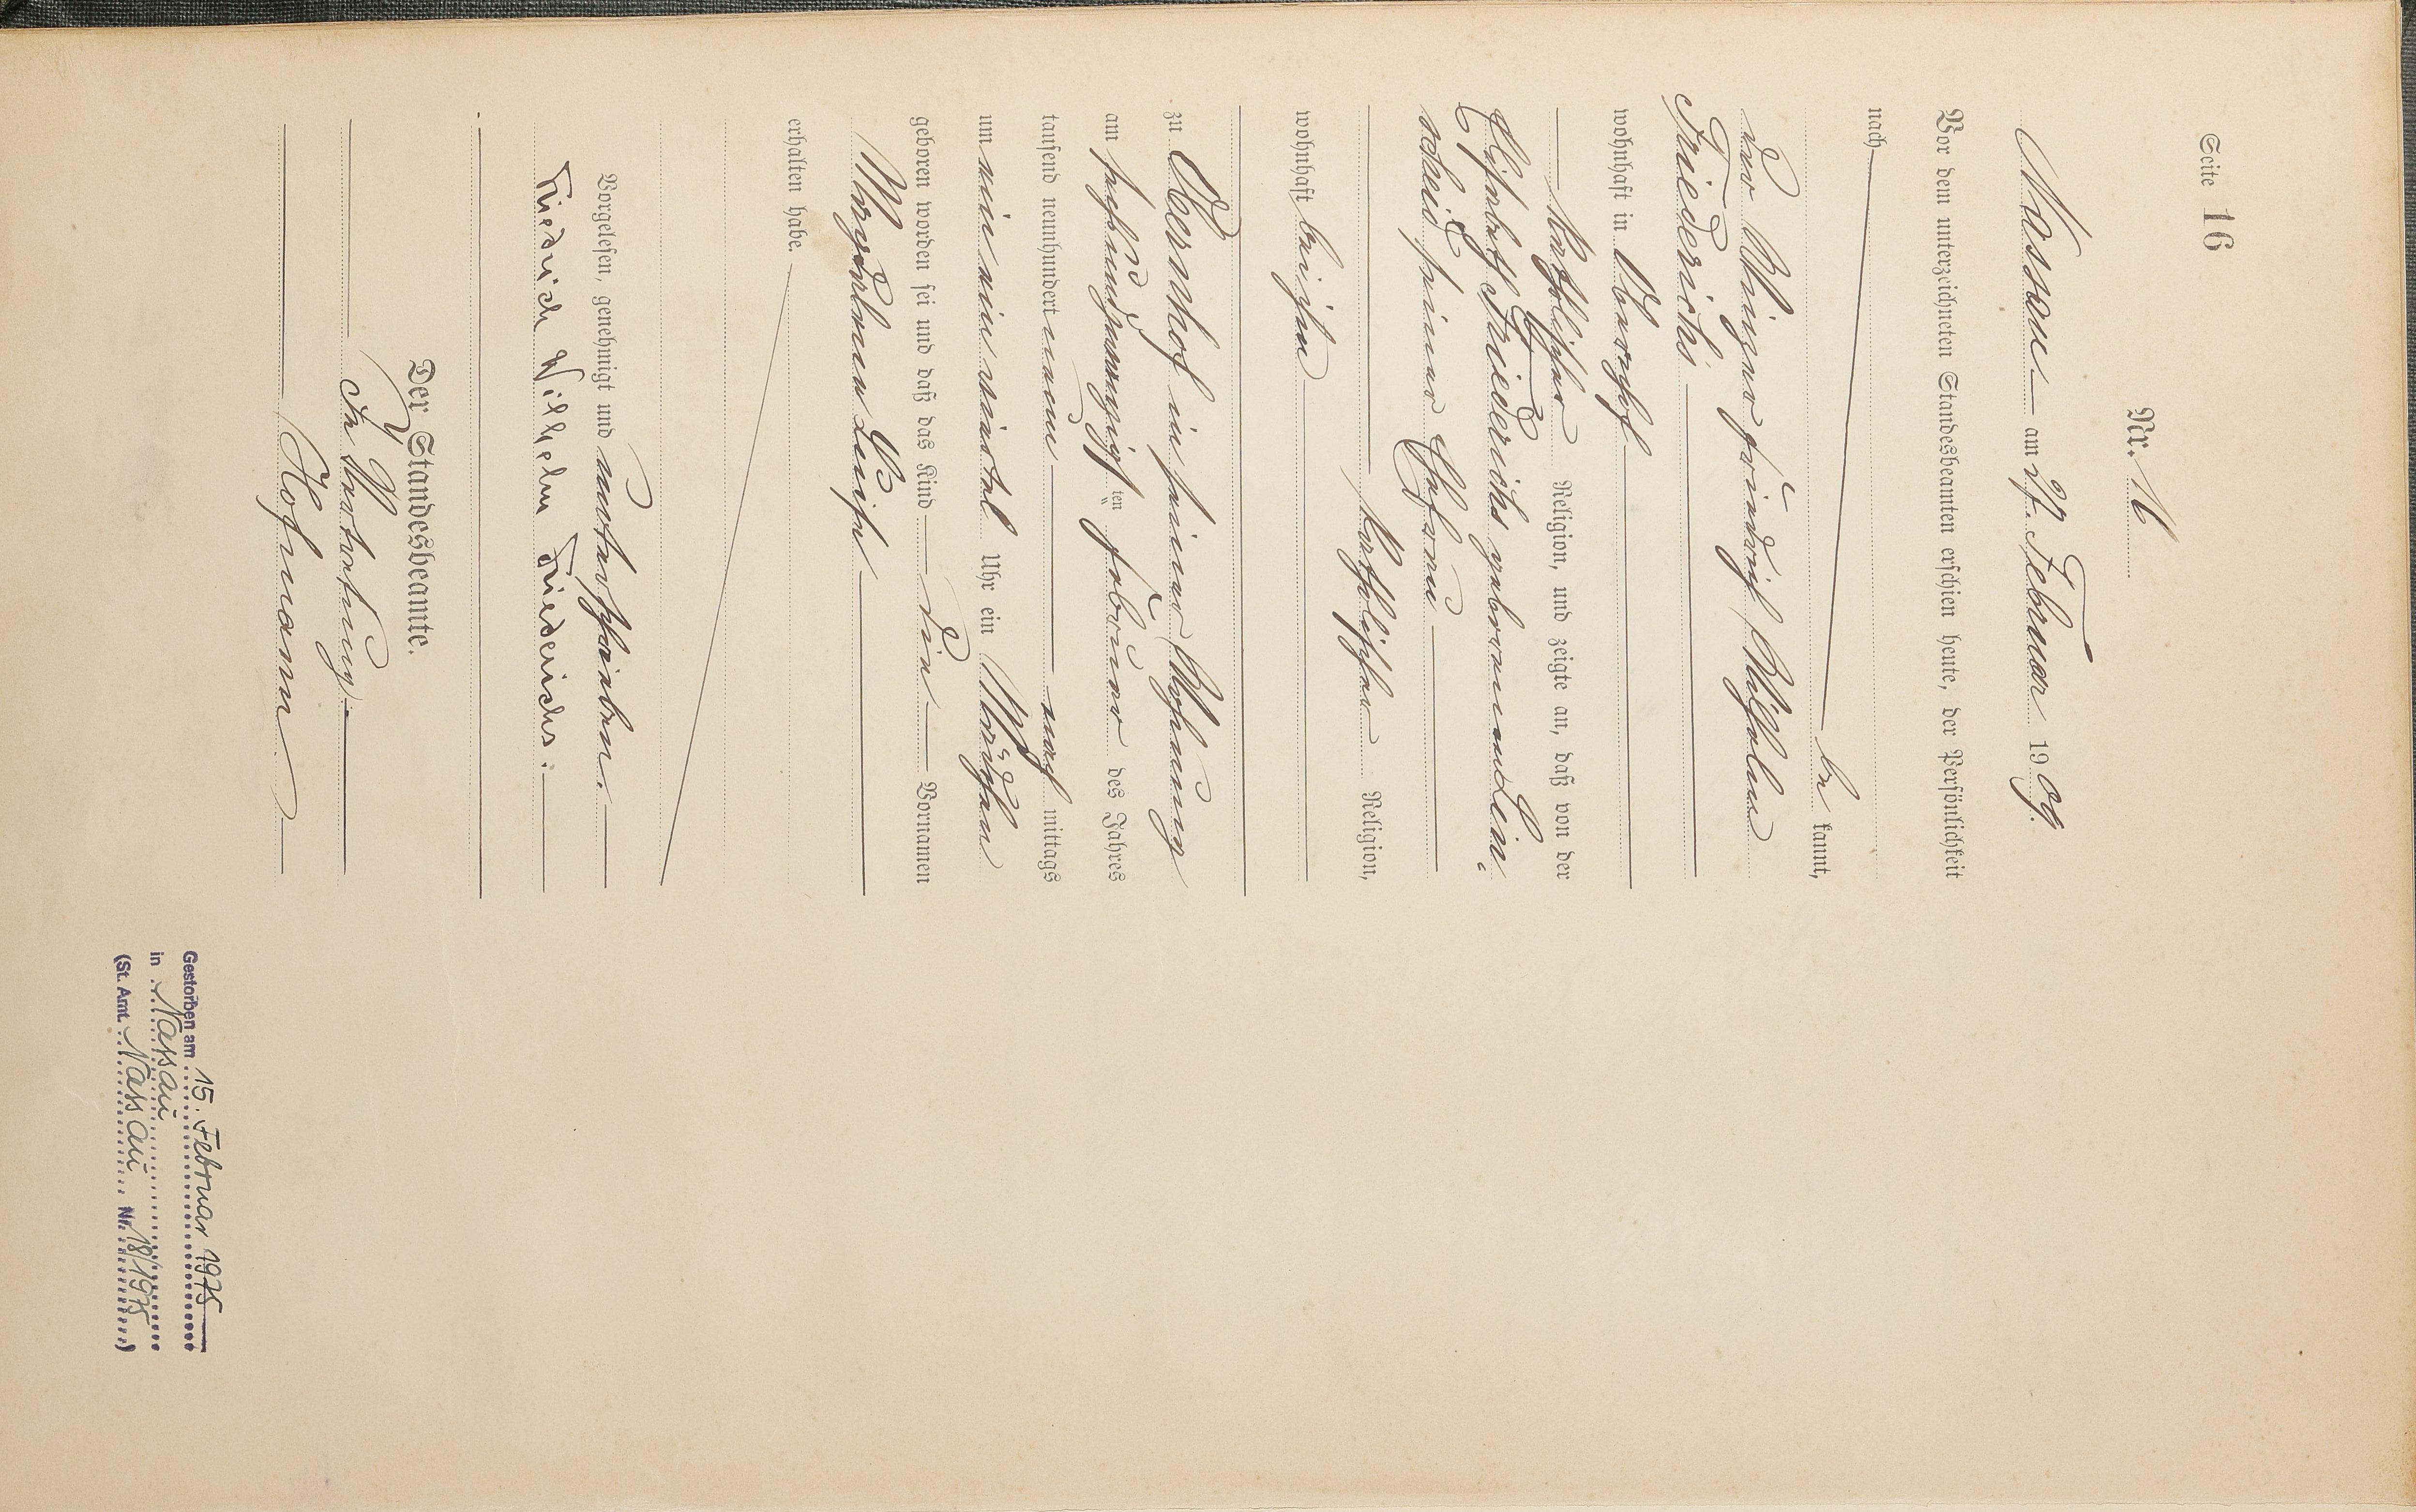 Seite 16
Nr. 16
Nassau am 27. Februar 1909.
Vor dem unterzeichneten Standesbeamten erschien heute, der Persönlichkeit
nach
be kannt,
der Friedrich Wilhelm
Friederichs
wohnhaft in Obernhof
katholischer Religion, und zeigte an, daß von der
Elisabeth Friederichs geborenen Lein-
scheid seiner Ehefrau
katholischer Religion,
wohnhaft bei ihm
zu Obernhof in seiner Wohnung
am sechsundzwanzigsten Februar des Jahres
tausend neunhundert neun nach mittags
um ein ein viertel Uhr ein Mädchen
geboren worden sei und daß das Kind die Vornamen
Magdalena Luise
erhalten habe.
Vorgelesen, genehmigt und unterschrieben.
Friedrich Wilhelm Friederichs.
Der Standesbeamte.
In Vertretung.
Hofmann
Gestorben am 15. Februar 1975
in Nassau
(St. Amt. Nassau Nr. 18/1975)